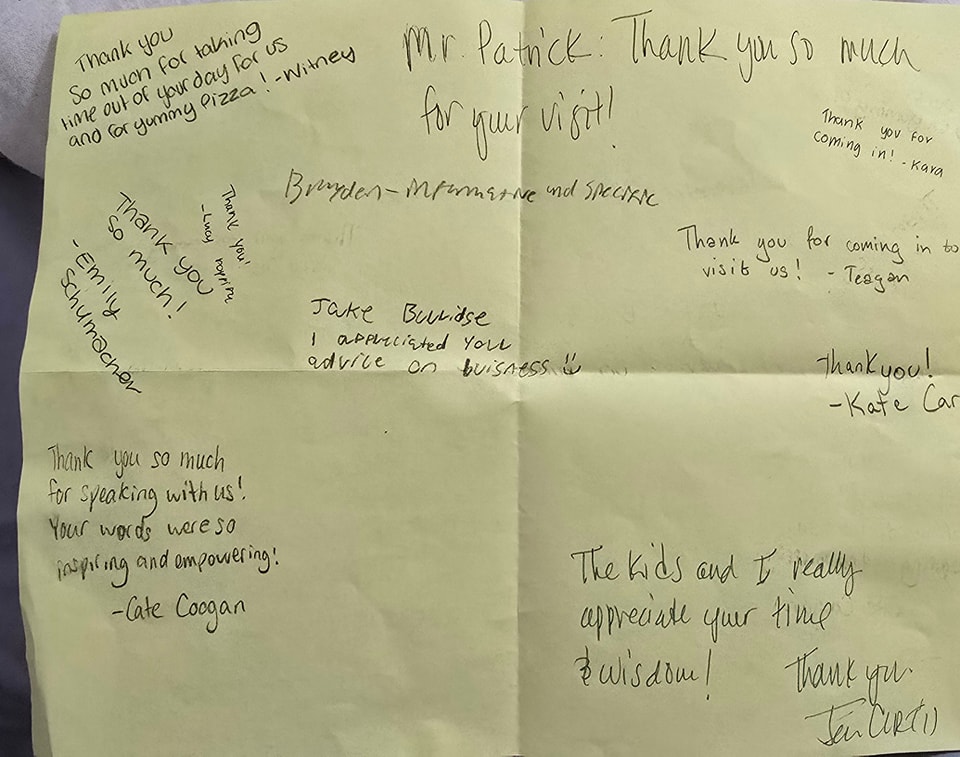 Thank you
so much for talking
time out of your day for us
and for yummy Pizza! -Witney
Mr. Patrick: Thank you so much
for your visit!
Thank you for
coming in! - Kara
Brayden - informative and specific
Thank you
so much!
- Emily
Schumacher
Thank you!
- Lucy
Thank you for coming in to
visit us! - Teagan
Jake
I appreciated your
advice on buisness
Thank you!
- Kate Car
Thank you so much
for speaking with us!
Your words were so
inspiring and empowering!
- Cate Coogan
The kids and I really
appreciate your time
& wisdom! Thank you.
Jen Curtis